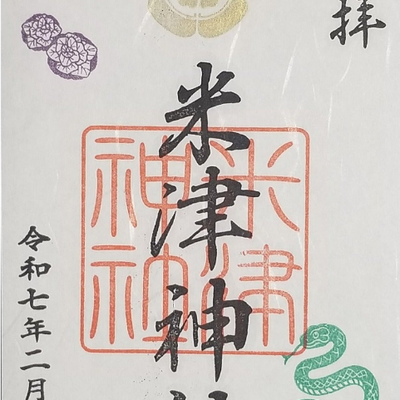 拝
米津神社
米津神社
令和七年二月